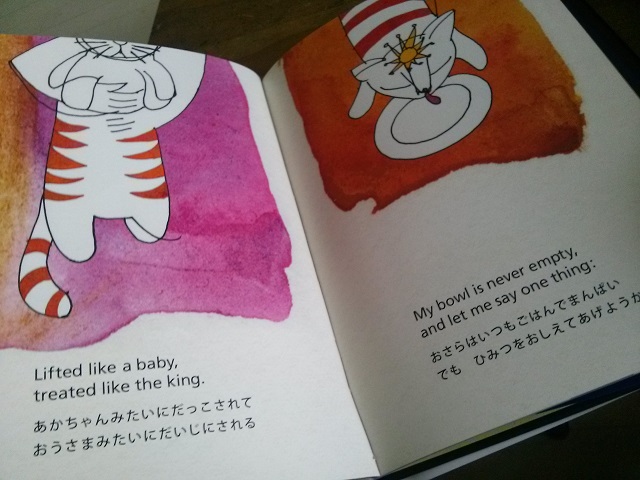 Lifted like a baby,
treated like the king.
あかちゃんみたいにだっこされて
おうさまみたいにだいじにされる
My bowl is never empty,
and let me say one thing:
おさらはいつもごはんでまんぱい
でも　ひみつをおしえてあげようか